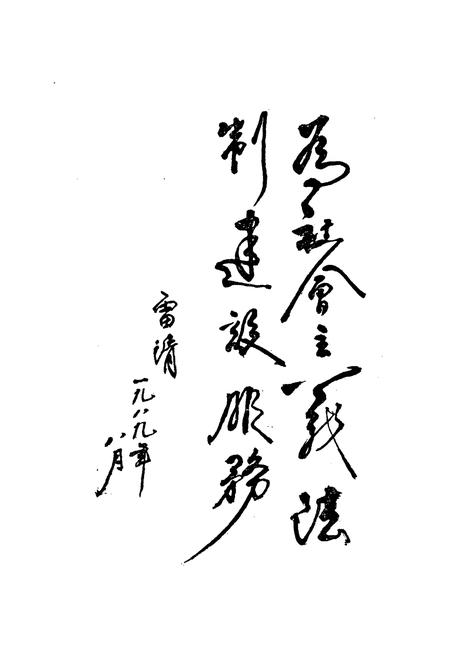 為社會主義法
制建設服務
雷潔
一九八九年
八月